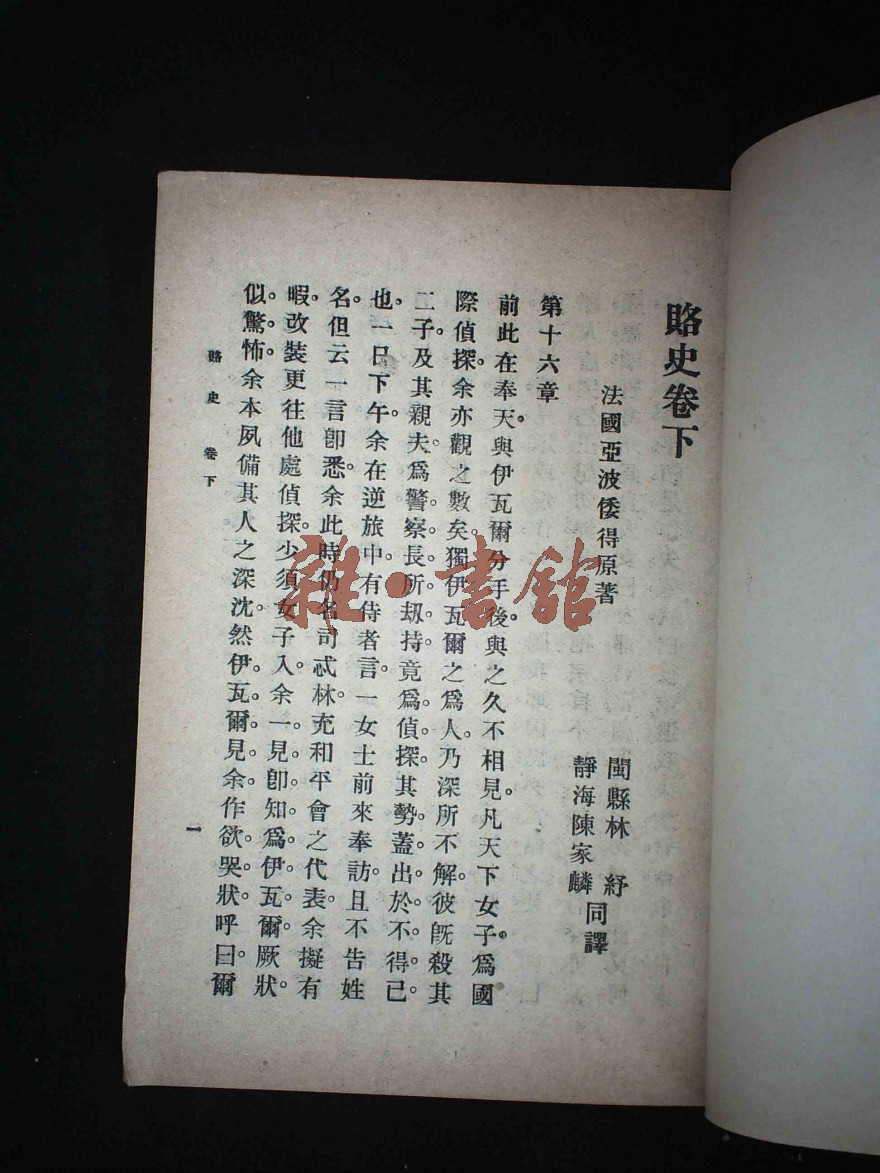 賂史卷下
法國亞波倭得原著
閩縣林　紓
靜海陳家麟同譯
第十六章
前此在奉天與伊瓦爾分手後。與之久不相見。凡天下女子爲國
際偵探。余亦觀之數矣。獨伊瓦爾之爲人。乃深所不解。彼旣殺其
二子及其親夫。爲警察長所刼持。竟爲偵探。其勢蓋出於不得已
也。一日下午。余在逆旅中。有侍者言一女士前來奉訪。且不告姓
名。但云一言卽悉。余此時仍名司忒林。充和平會之代表。余擬有
暇。改裝更往他處偵探。少須女子入。余一見。卽知爲伊瓦爾。厥狀
似驚怖。余本夙備其人之深沈。然伊瓦爾見余。作欲哭狀。呼曰。爾
賂史　卷下
一
雜·書館